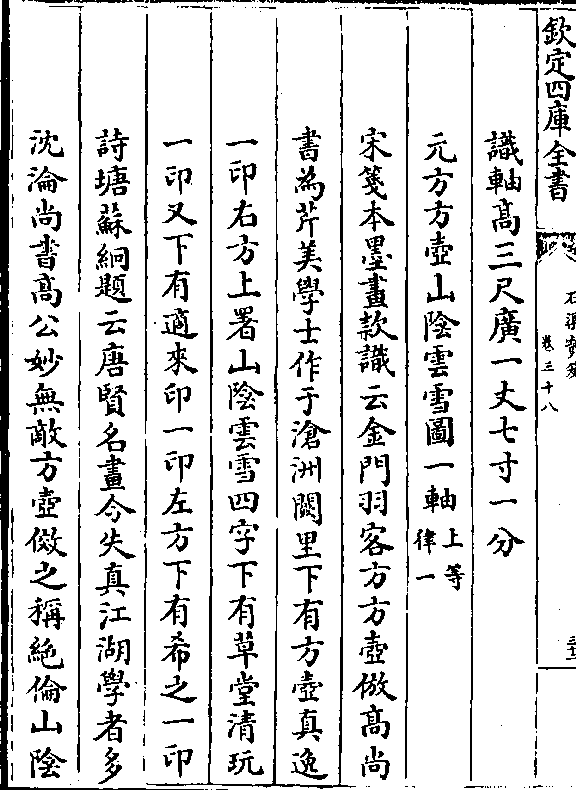 欽定四庫全書
石渠寶笈
卷三十八
識軸高三尺廣一丈七寸一分
元方方壺山陰雲雪圖一軸 上等律一
宋箋本墨畫款識云金門羽客方方壺倣髙尚
書為芹美學士作于滄洲闕里下有方壺真逸
一印右方上署山陰雲雪四字下有草堂清玩
一印又下有適來印一印左方下有希之一印
詩塘蘇絅題云唐賢名畫今失真江湖學者多
沈淪尚書髙公妙無敵方壺倣之稱絶倫山陰